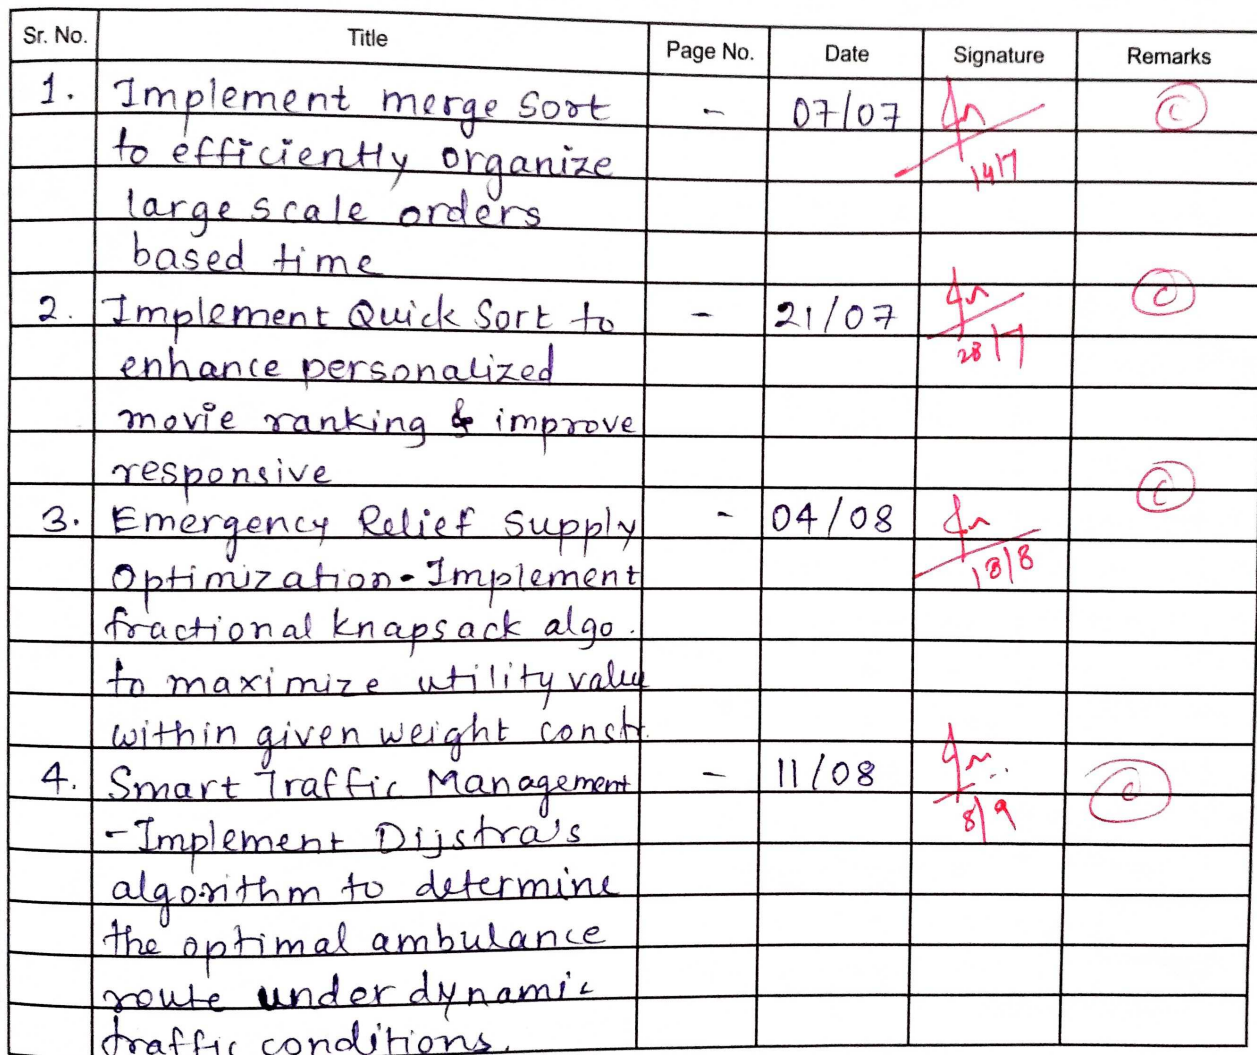 Sr. No. Title Page No. Date Signature Remarks
1. Implement merge Sort - 07/07 C
to efficiently organize 14/7
large scale orders
based time
2. Implement Quick Sort to - 21/07 C
enhance personalized 28/7
movie ranking & improve
responsive C
3. Emergency Relief Supply - 04/08
Optimization - Implement 18/8
fractional knapsack algo.
to maximize utility value
within given weight constr.
4. Smart Traffic Management - 11/08 C
- Implement Dijstra's 8/9
algorithm to determine
the optimal ambulance
route under dynamic
traffic conditions.